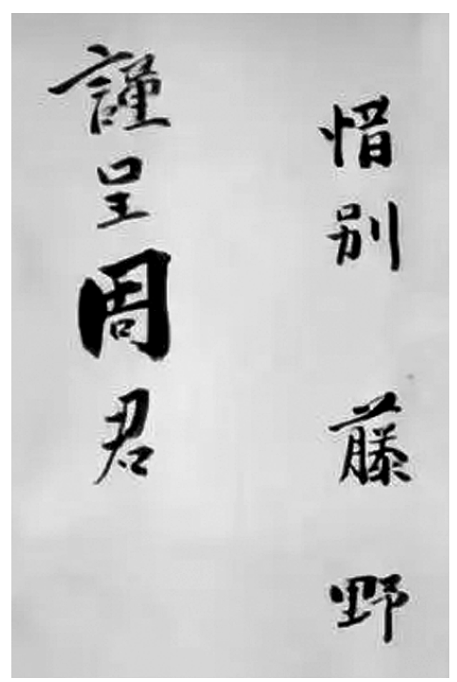 惜别 藤 野
謹呈周君